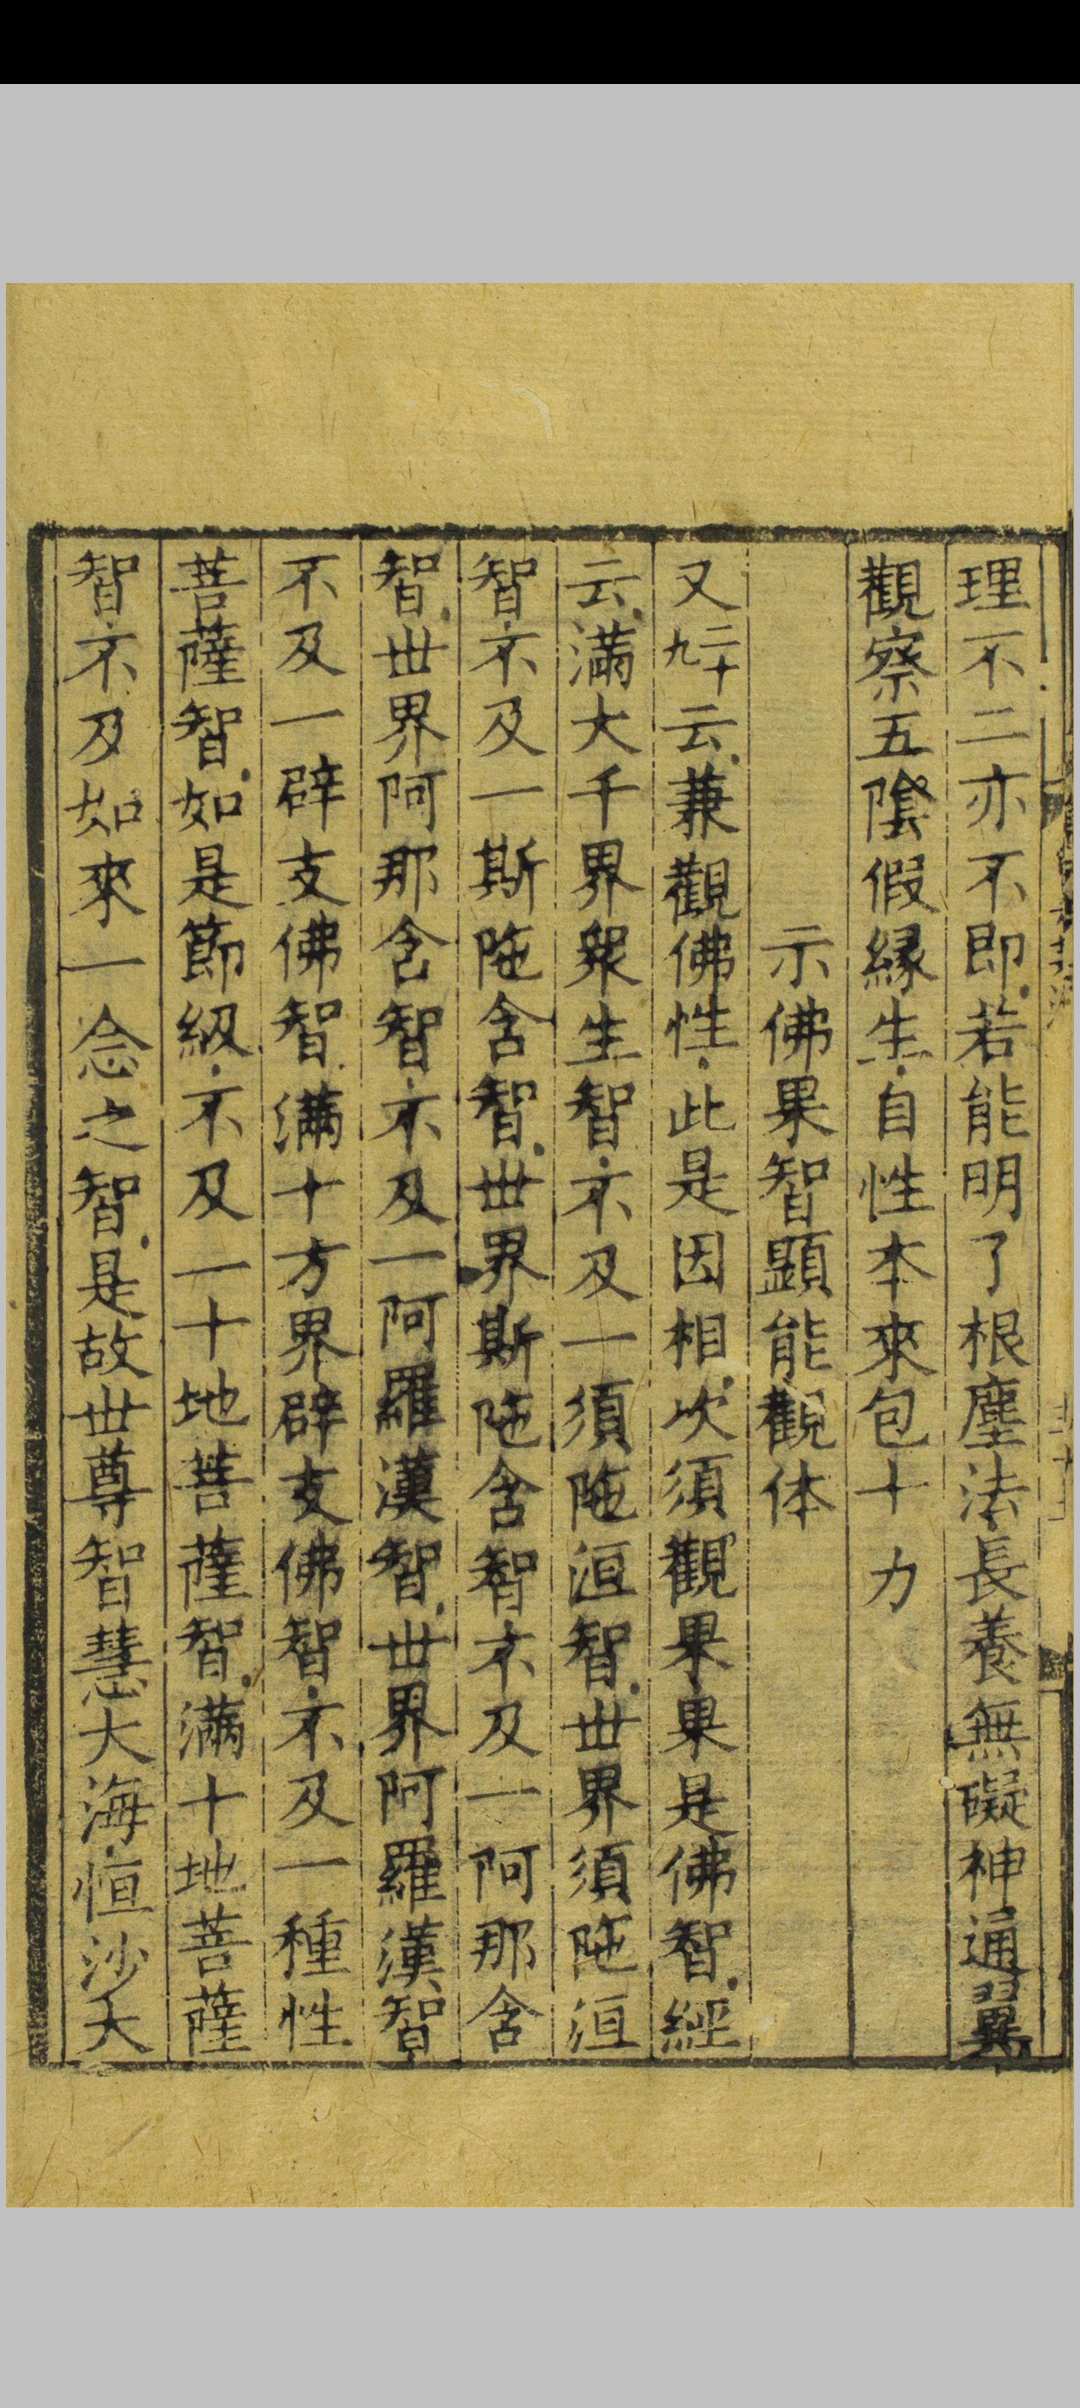 理不二亦不即若能明了根塵法長養無礙神通翼
觀察五陰假縁生自性本來包十力
示佛果智顕能觀体
又二十九云兼觀佛性此是因相次須觀果果是佛智經
云滿大千界衆生智不及一須陁洹智世界須陁洹
智不及一斯陁含智世界斯陁含智不及一阿那含
智世界阿那含智不及一阿羅漢智世界阿羅漢智
不及一辟支佛智滿十方界辟支佛智不及一種性
菩薩智如是節級不及一十地菩薩智滿十地菩薩
智不及如來一念之智是故世尊智慧大海恒沙大